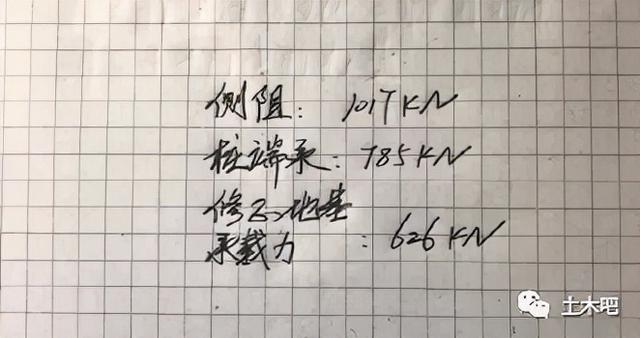 侧阻: 1017KN
桩端承: 785KN
修正地基
承载力 : 626KN
土木吧